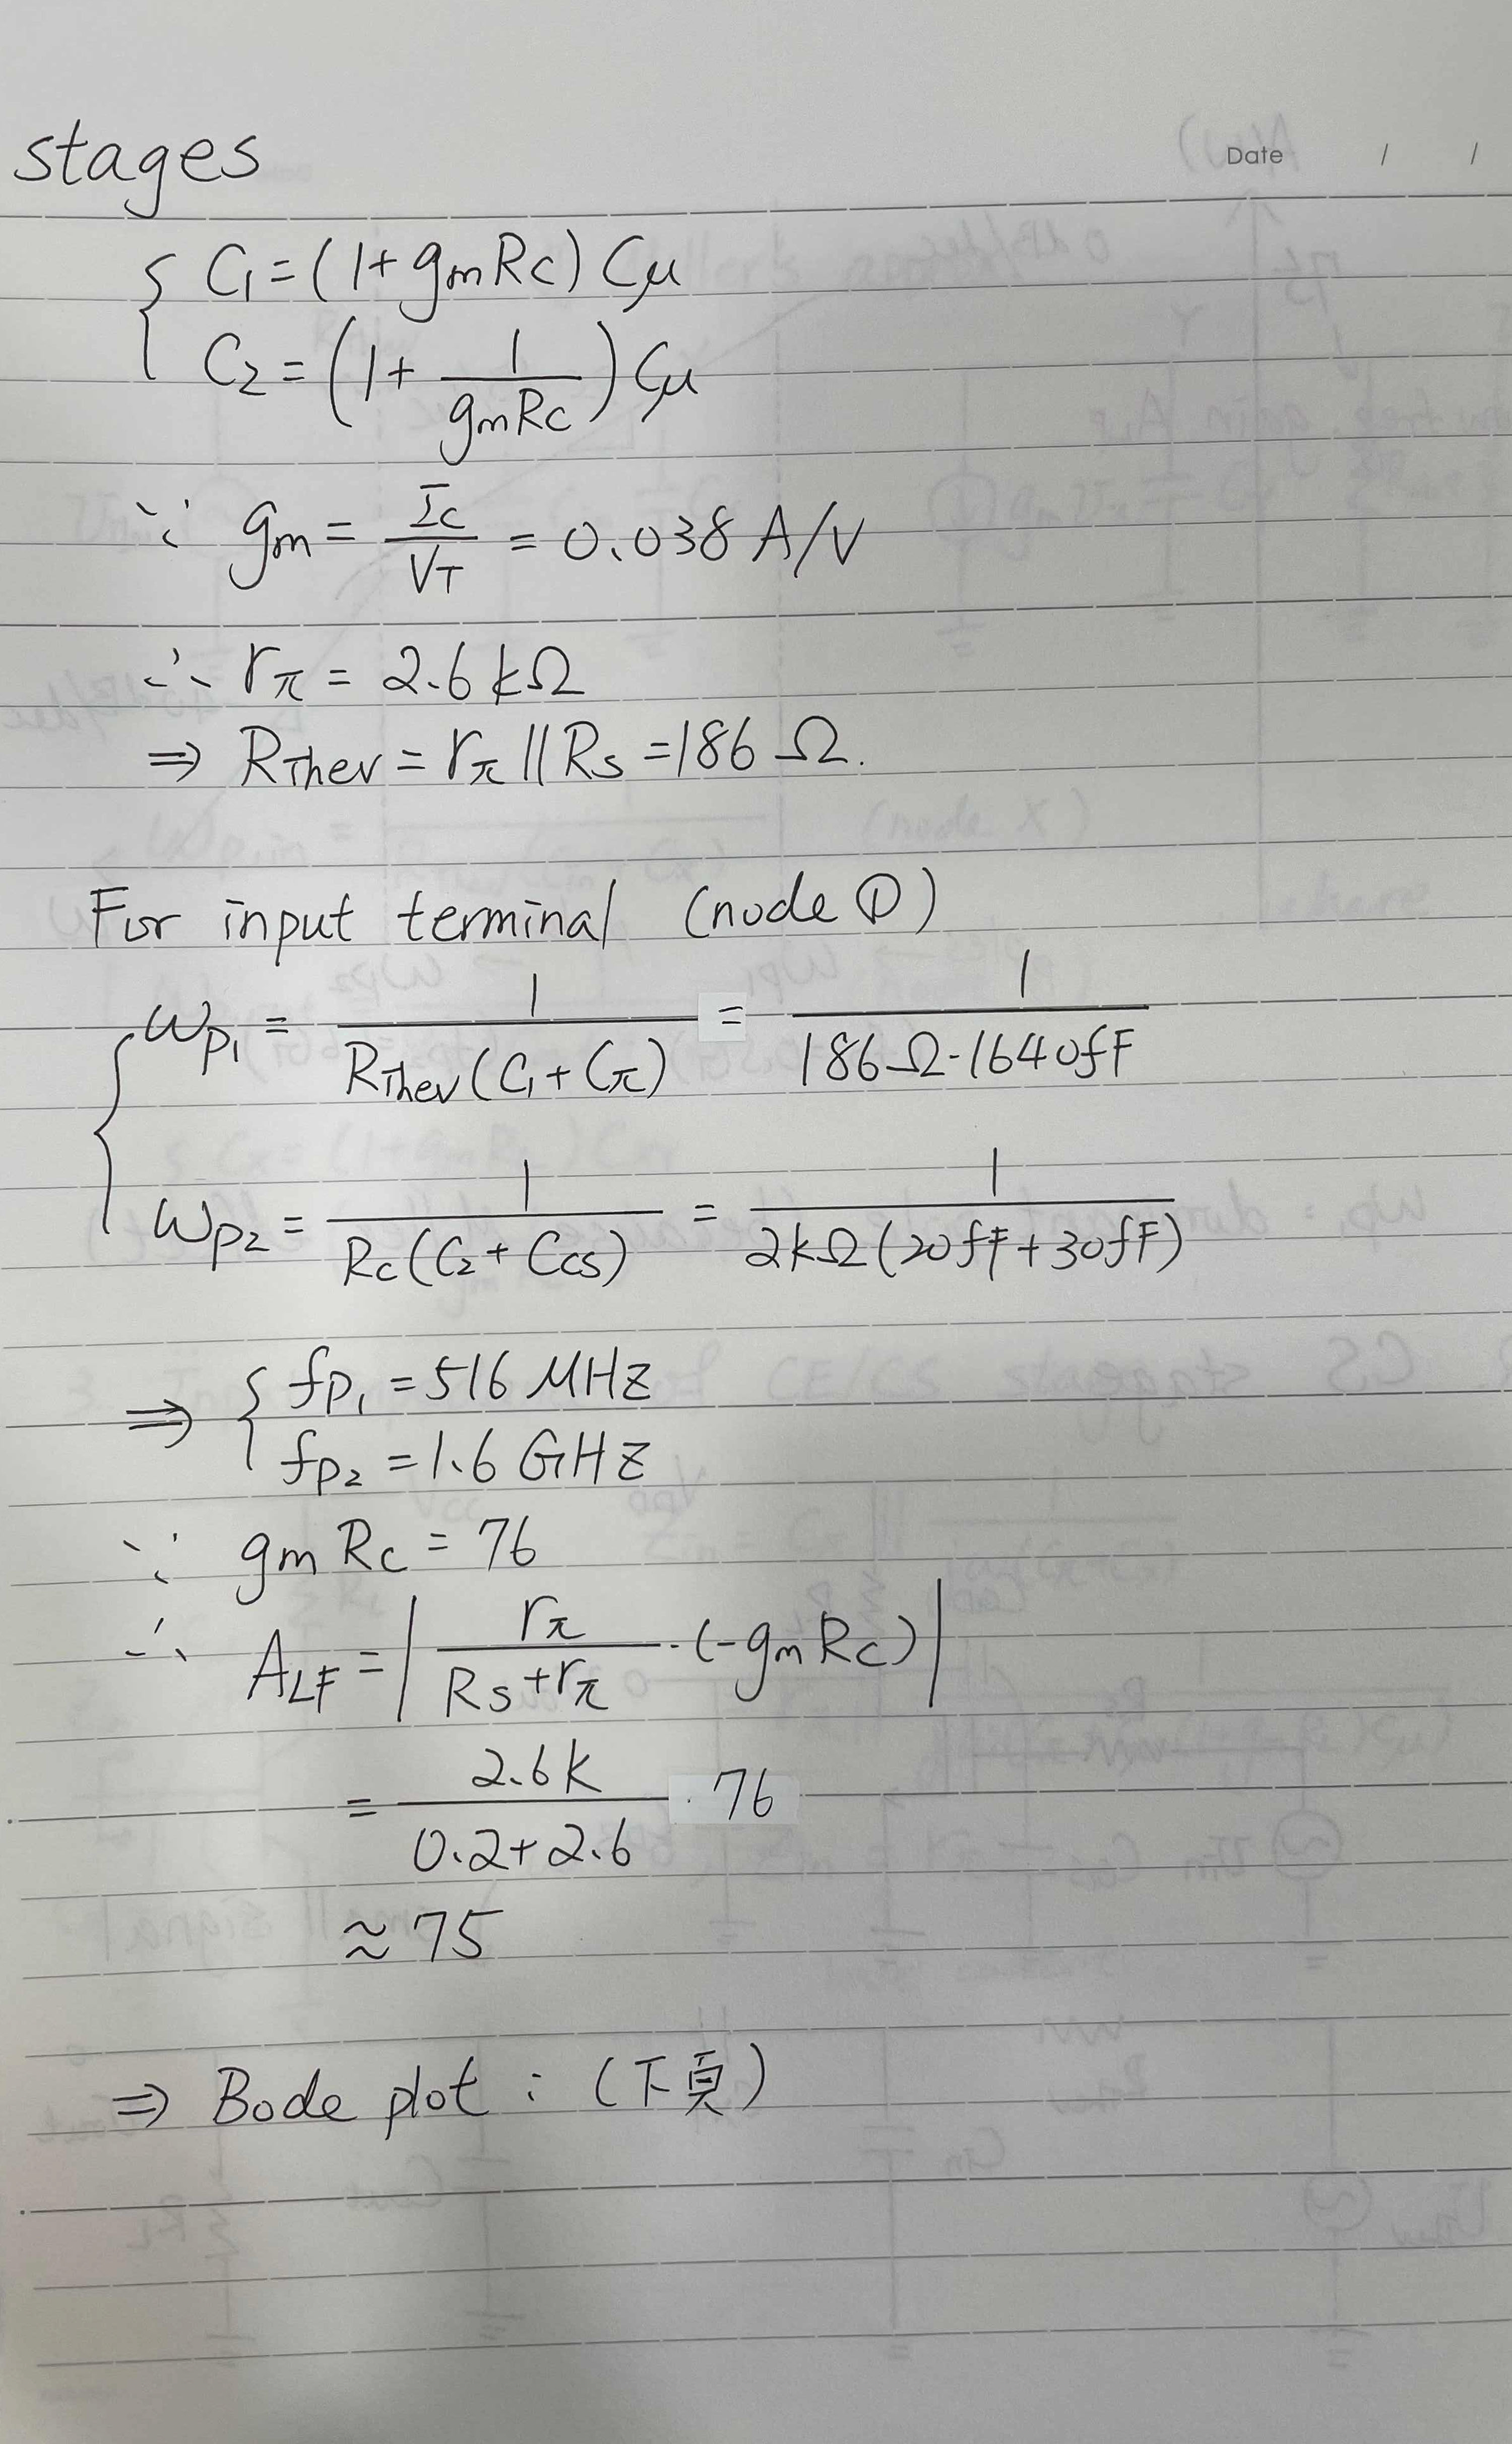 stages
Date / /
{ C₁ = (1 + gmRc) Cμ
C₂ = (1 + 1/(gmRc)) Cμ
∵ gm = Ic/VT = 0.038 A/V
∴ rπ = 2.6 kΩ
⇒ RThev = rπ || Rs = 186 Ω.
For input terminal (node ①)
{ ωp₁ = 1/(RThev (C₁ + Cπ)) = 1/(186Ω·1640fF)
ωp₂ = 1/(Rc (C₂ + Ccs)) = 1/(2kΩ (20fF + 30fF))
⇒ { fp₁ = 516 MHz
fp₂ = 1.6 GHz
∵ gm Rc = 76
∴ ALF = | rπ/(Rs + rπ) · (-gmRc) |
= 2.6k/(0.2 + 2.6) · 76
≈ 75
⇒ Bode plot : (下頁)